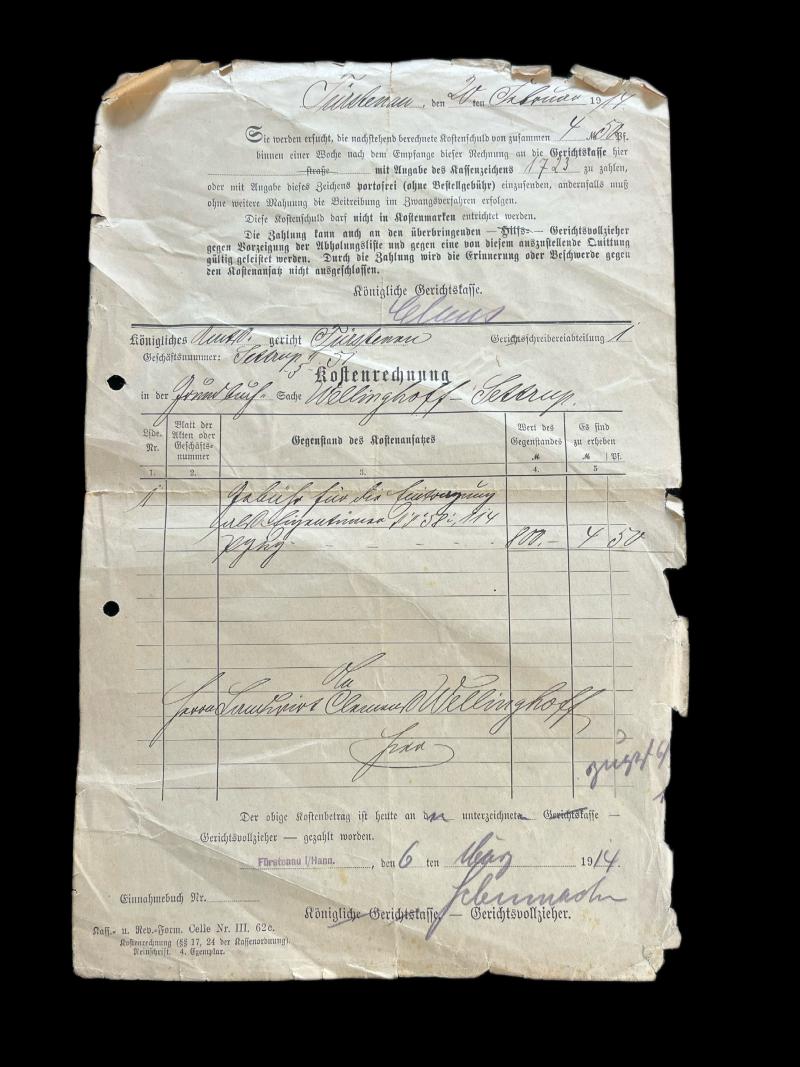 Fürstenau, den 20 ten Februar 1914
Sie werden ersucht, die nachstehend berechnete Kostenschuld von zusammen 4 M 50 Pf.
binnen einer Woche nach dem Empfange dieser Rechnung an die Gerichtskasse hier
straße mit Angabe des Kassenzeichens 1723 zu zahlen,
oder mit Angabe dieses Zeichens portofrei (ohne Bestellgebühr) einzusenden, andernfalls muß
ohne weitere Mahnung die Beitreibung im Zwangsverfahren erfolgen.
Diese Kostenschuld darf nicht in Kostenmarken entrichtet werden.
Die Zahlung kann auch an den überbringenden — Hilfs- — Gerichtsvollzieher
gegen Vorzeigung der Abholungsliste und gegen eine von diesem auszustellende Quittung
gültig geleistet werden. Durch die Zahlung wird die Erinnerung oder Beschwerde gegen
den Kostenansatz nicht ausgeschlossen.
Königliche Gerichtskasse.
Königliches Amts gericht Fürstenau Gerichtsschreibereiabteilung 1
Geschäftsnummer: Settrup
Kostenrechnung
in der Grundbuch- Sache Wellinghoff - Settrup.
Lfde. Nr. Blatt der Akten oder Geschäfts-nummer Gegenstand des Kostenansatzes Wert des Gegenstandes M Es sind zu erheben M Pf.
1. 2. 3. 4. 5
1 Gebühr für die Eintragung
als Eigentümer 58 114
800.- 4 50
An
Herrn Landwirt Clemens Wellinghoff
hier
Der obige Kostenbetrag ist heute an den unterzeichneten Gerichtskasse —
Gerichtsvollzieher — gezahlt worden.
Fürstenau i/Hann. , den 6 ten März 1914.
Einnahmebuch Nr.
Königliche Gerichtskasse. — Gerichtsvollzieher.
Kass.- u. Rev.-Form. Celle Nr. III. 62c.
Kostenrechnung (§§ 17, 24 der Kassenordnung).
Reinschrift. 4. Exemplar.